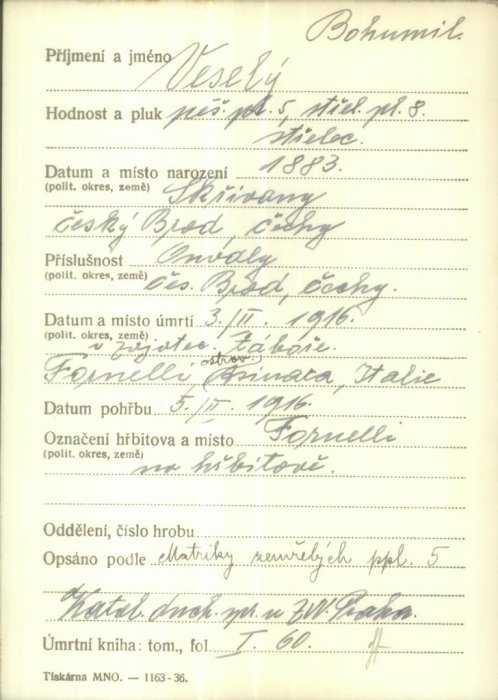 Bohumil
Příjmení a jméno Veselý
Hodnost a pluk pěš. pl. 5, střel. pl. 8.
střelec.
Datum a místo narození 1883.
(polit. okres, země) Skřivany
český Brod, čechy
Příslušnost Ouvaly
(polit. okres, země) čes. Brod, čechy.
Datum a místo úmrtí 3./II. 1916.
(polit. okres, země) v zajatec. Záboře.
Fornelli ostrov Asinara, Italie
Datum pohřbu 5./II. 1916.
Označení hřbitova a místo Fornelli
(polit. okres, země) na hřbitově.
Oddělení, číslo hrobu
Opsáno podle Matriky zemřelých ppl. 5
Katol. duch. spr. u ZVV. Praha.
Úmrtní kniha: tom., fol. I. 60.
Tiskárna MNO. — 1163-36.